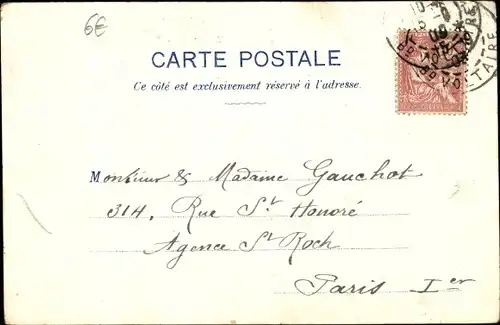 6€
CARTE POSTALE
Ce côté est exclusivement réservé à l'adresse.
Monsieur & Madame Gauchot
314, Rue St Honoré
Agence St Roch
Paris Ier